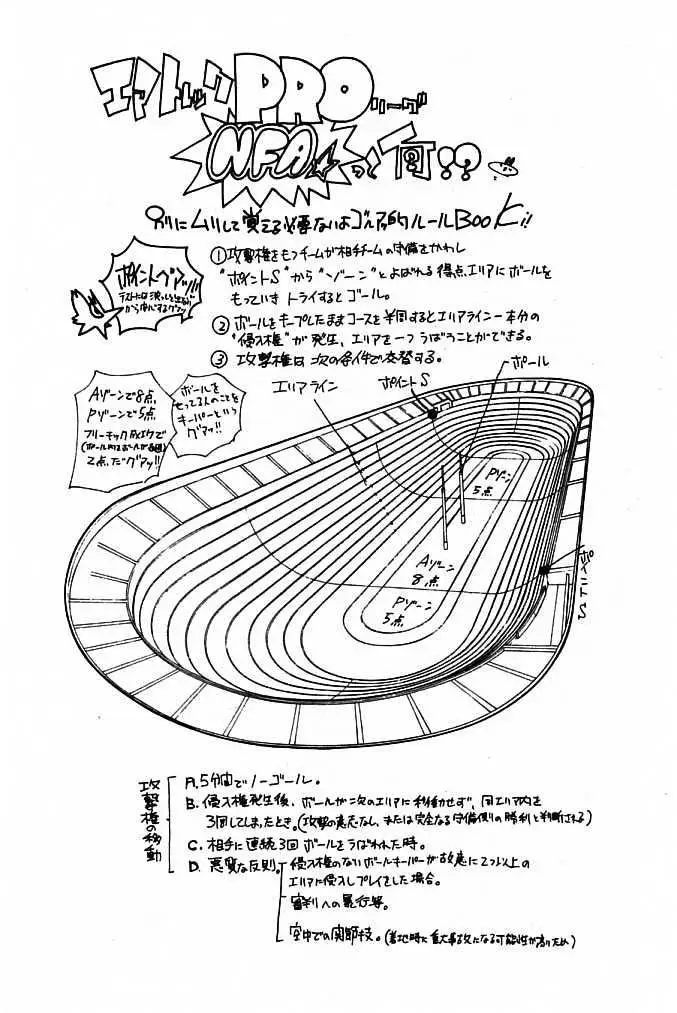 エアトレックPROリーグ
NFA☆って何!?
別にムリして覚える必要ないよゴルァ的ルールBOOK!!
ポイントグアッ!!
①攻撃権をもつチームが相手チームの守備をかわし
"ポイントS"から"ゾーン"とよばれる得点エリアにボールを
もっていき トライするとゴール。
②ボールをキープしたままコースを半周するとエリアライン一本分の
"侵入権"が発生、エリアを一つうばうことができる。
③ 攻撃権は次の条件で交替する。
Aゾーンで8点
Pゾーンで5点
フリーキック成功で
2点.だグアッ!!
ボールを
もってる人のことを
キーパーという
グアッ!!
エリアライン
ポイントS
ポール
Pゾーン
5点
Aゾーン
8点
Pゾーン
5点
ポイントS
攻撃権の移動
A.5分間でノーゴール。
B.侵入権発生後、ボールが次のエリアに移動せず、同エリア内を
3回してしまったとき。(攻撃の意志なし、または完全なる守備側の勝利と判断される)
C.相手に連続3回ボールをうばわれた時。
D.悪質な反則。
侵入権のないボールキーパーが故意に2つ以上の
エリアに侵入しプレイをした場合。
審判への暴行等。
空中での関節技。(着地時に重大事故になる可能性が高いため)